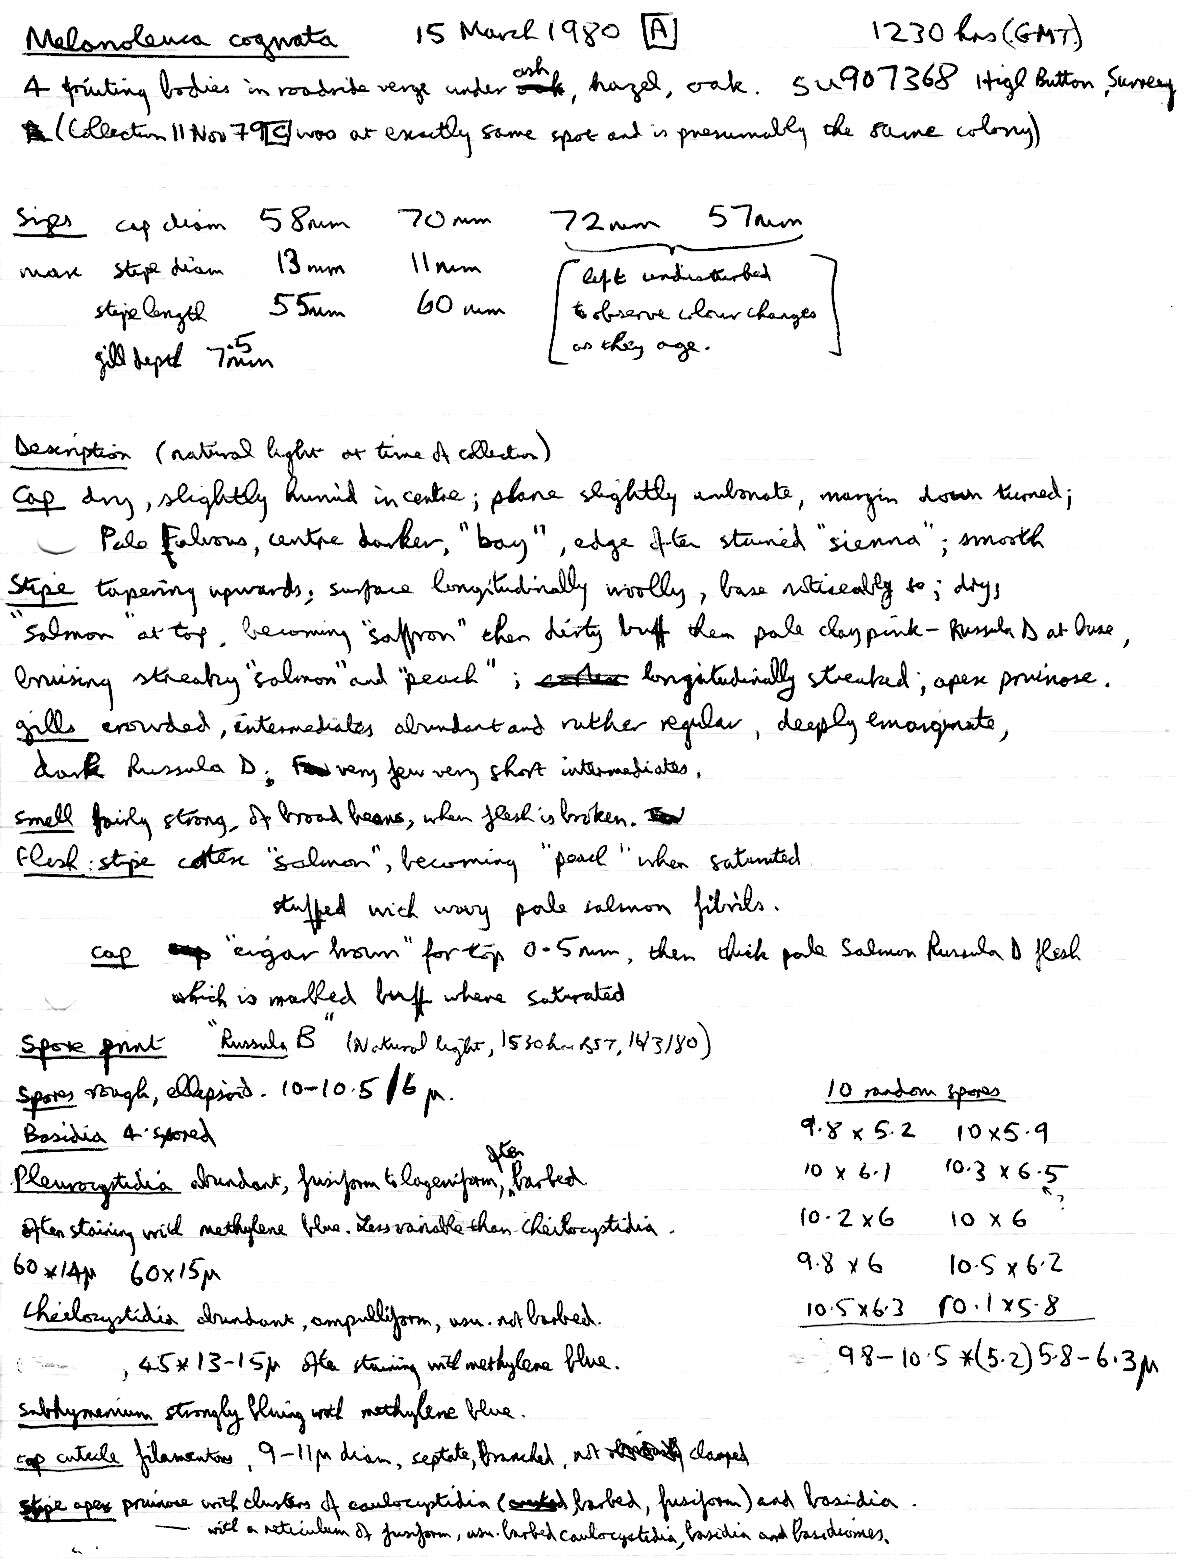 Melanoleuca cognata 15 March 1980 [A] 1230 hrs (GMT)
4 fruiting bodies in roadside verge under ash, hazel, oak. SU907368 High Button, Surrey
(Collection 11 Nov 79 [C] was at exactly same spot and is presumably the same colony)
Sizes cap diam 58mm 70mm 72mm 57mm
max stipe diam 13mm 11mm [left undisturbed
stipe length 55mm 60mm to observe colour changes
gill depth 7.5mm as they age.]
Description (natural light at time of collection)
Cap dry, slightly humid in centre; plane slightly umbonate, margin down turned;
Pale Fulvous, centre darker, "bay", edge often stained "sienna"; smooth
Stipe tapering upwards; surface longitudinally woolly, base noticeably so; dry,
"Salmon" at top, becoming "saffron" then dirty buff then pale clay pink - Russula D at base,
bruising streaky "salmon" and "peach"; longitudinally streaked; apex pruinose.
gills crowded, intermediates abundant and rather regular, deeply emarginate,
dark Russula D; very few very short intermediates.
Smell fairly strong, of broad beans, when flesh is broken.
Flesh: stipe cortex "salmon", becoming "peach" when saturated
stuffed with wavy pale salmon fibrils.
cap "cigar brown" for top 0.5mm, then thick pale Salmon Russula D flesh
which is marked buff where saturated
Spore print "Russula B" (Natural light, 1530 hrs BST, 16/3/80)
Spores rough, ellipsoid. 10-10.5/6 μ. 10 random spores
Basidia 4-spored 9.8 x 5.2 10 x 5.9
Pleurocystidia abundant, fusiform to lageniform, often barbed 10 x 6.1 10.3 x 6.5 ?
often staining with methylene blue. Less variable than cheilocystidia. 10.2 x 6 10 x 6
60 x 14μ 60 x 15μ 9.8 x 6 10.5 x 6.2
Cheilocystidia abundant, ampulliform, usu. not barbed. 10.5 x 6.3 10.1 x 5.8
, 45 x 13-15μ often staining with methylene blue. 9.8-10.5 x (5.2) 5.8-6.3μ
Subhymenium strongly bluing with methylene blue.
cap cuticle filamentous, 9-11μ diam, septate, branched, not clamped
stipe apex pruinose with clusters of caulocystidia (barbed, fusiform) and basidia.
— with a reticulum of fusiform, usu. barbed caulocystidia, basidia and basidiomes.